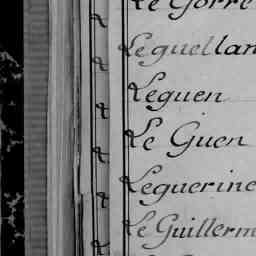 Le Gorre
Leguellan
Leguen
Le Guen
Leguerine
Le Guillerm